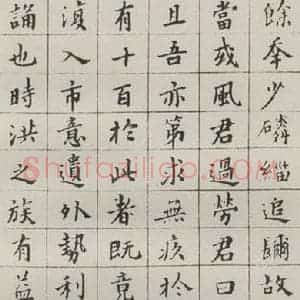 餘奉少磷緇追故
當或風君過勞君曰
且吾亦第求無疚於
有十百於此者既竟
入市意遺外勢利
誦也時洪之族有益
Shufaziliao.com